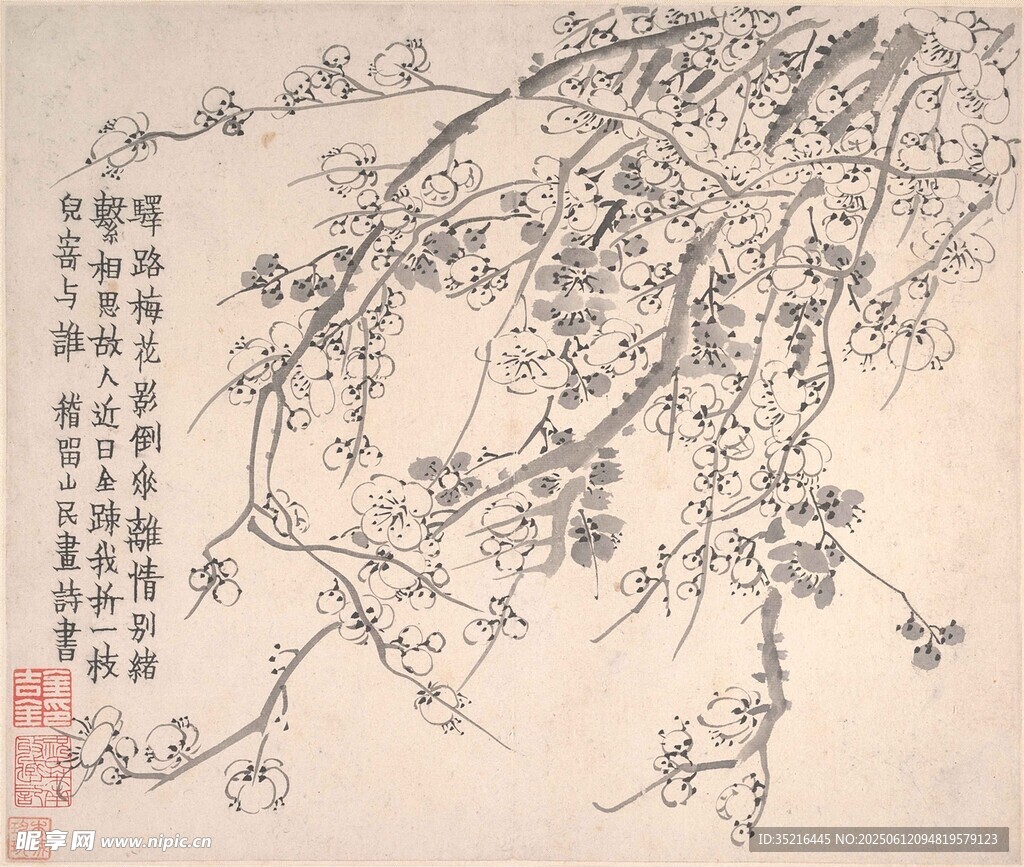 驛路梅花影倒垂離情別緒
繫相思故人近日全疎我折一枝
兒寄与誰 稽留山民畫詩書
昵享网 www.nipic.cn
ID:35216445 NO:20250612094819579123